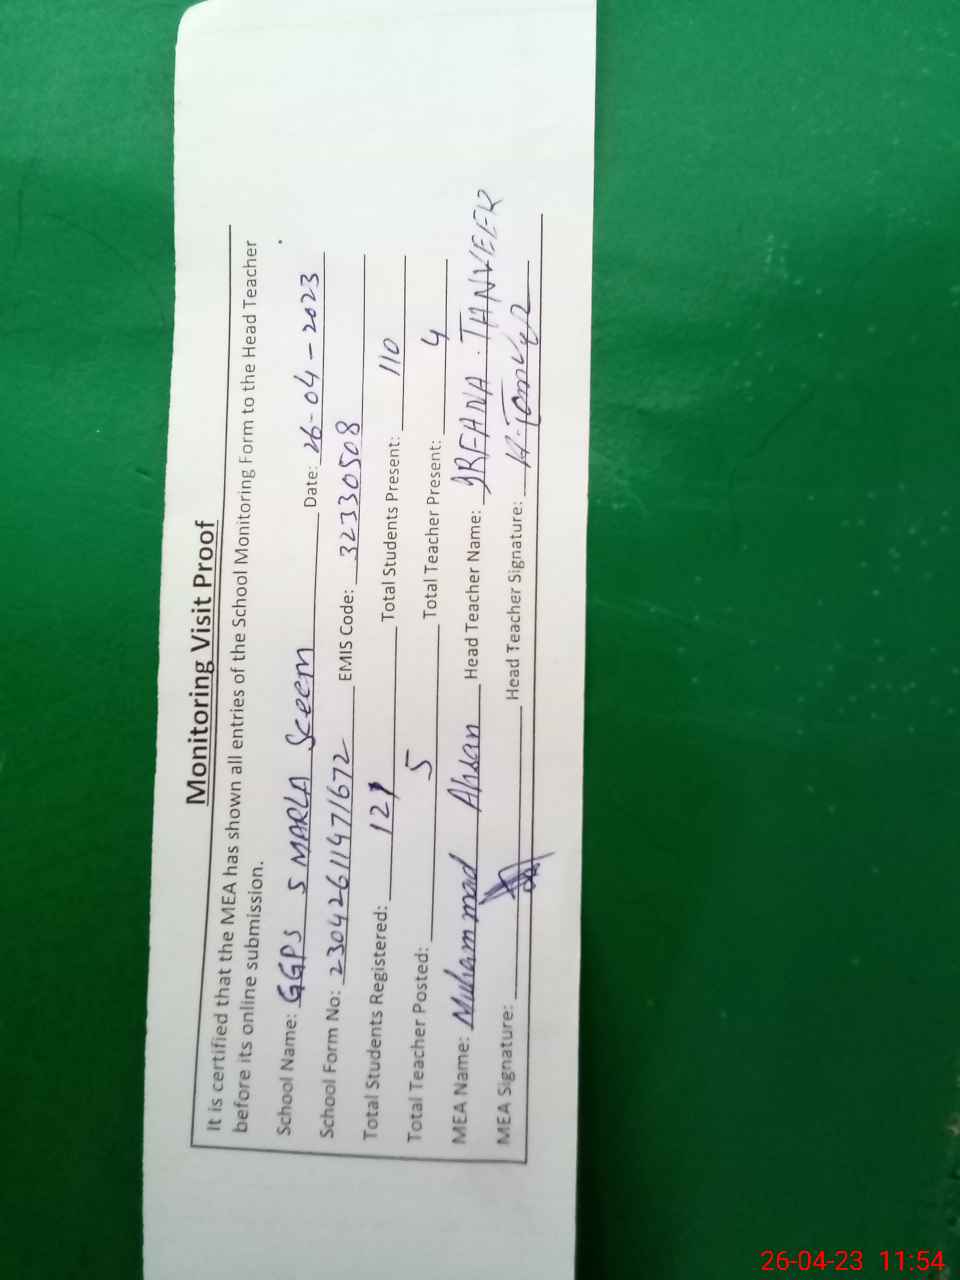 Monitoring Visit Proof
It is certified that the MEA has shown all entries of the School Monitoring Form to the Head Teacher
before its online submission.
School Name: GGPS 5 MARLA Sceem Date: 26-04-2023
School Form No: 23042611471672 EMIS Code: 32330508
Total Students Registered: 121 Total Students Present: 110
Total Teacher Posted: 5 Total Teacher Present: 4
MEA Name: Muhammad Ahsan Head Teacher Name: IRFANA. TANVEER
MEA Signature: Head Teacher Signature:
26-04-23 11:54